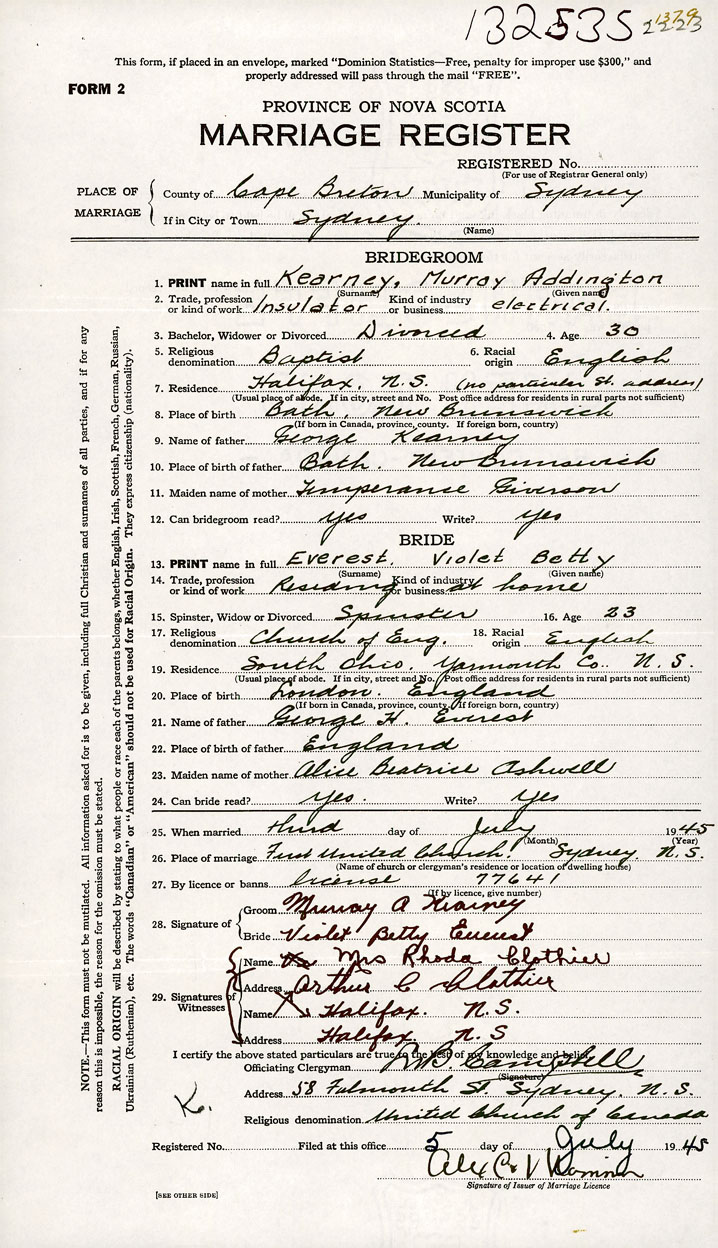 132535 2223 1379
This form, if placed in an envelope, marked "Dominion Statistics—Free, penalty for improper use $300," and
properly addressed will pass through the mail "FREE".
FORM 2
PROVINCE OF NOVA SCOTIA
MARRIAGE REGISTER
REGISTERED No.
(For use of Registrar General only)
PLACE OF MARRIAGE
County of Cape Breton Municipality of Sydney
If in City or Town Sydney.
(Name)
BRIDEGROOM
1. PRINT name in full Kearney, Murray Addington
(Surname) (Given name)
2. Trade, profession or kind of work Insulator Kind of industry or business electrical.
3. Bachelor, Widower or Divorced Divorced 4. Age 30
5. Religious denomination Baptist 6. Racial origin English
7. Residence Halifax, N.S. (no particular St. address)
(Usual place of abode. If in city, street and No. Post office address for residents in rural parts not sufficient)
8. Place of birth Bath, New Brunswick
(If born in Canada, province, county. If foreign born, country)
9. Name of father George Kearney
10. Place of birth of father Bath. New Brunswick
11. Maiden name of mother Temperance Giverson
12. Can bridegroom read? yes Write? yes
BRIDE
13. PRINT name in full Everest, Violet Betty
(Surname) (Given name)
14. Trade, profession or kind of work Residing Kind of industry or business at home
15. Spinster, Widow or Divorced Spinster 16. Age 23
17. Religious denomination Church of Eng. 18. Racial origin English
19. Residence South Ohio, Yarmouth Co.. N.S.
(Usual place of abode. If in city, street and No. Post office address for residents in rural parts not sufficient)
20. Place of birth London. England
(If born in Canada, province, county. If foreign born, country)
21. Name of father George H. Everest
22. Place of birth of father England
23. Maiden name of mother Alice Beatrice Ashwell
24. Can bride read? yes. Write? yes
25. When married third day of July 1945
(Month) (Year)
26. Place of marriage First United Church, Sydney, N.S.
(Name of church or clergyman's residence or location of dwelling house)
27. By licence or banns license 77641
(If by licence, give number)
28. Signature of
Groom Murray A Kearney
Bride Violet Betty Everest
29. Signatures of Witnesses
Name Mrs Rhoda Clothier
Address Arthur C Clothier
Name Halifax. N.S.
Address Halifax N.S
I certify the above stated particulars are true to the best of my knowledge and belief.
Officiating Clergyman Campbell
(Signature)
Address 58 Falmouth St. Sydney, N.S.
K.
Religious denomination United Church of Canada
Registered No. Filed at this office 5 day of July 1945
Alex
Signature of Issuer of Marriage Licence
[SEE OTHER SIDE]
NOTE.—This form must not be mutilated. All information asked for is to be given, including full Christian and surnames of all parties, and if for any
reason this is impossible, the reason for the omission must be stated.
RACIAL ORIGIN will be described by stating to what people or race each of the parents belongs, whether English, Irish, Scottish, French, German, Russian,
Ukrainian (Ruthenian), etc. The words "Canadian" or "American" should not be used for Racial Origin. They express citizenship (nationality).